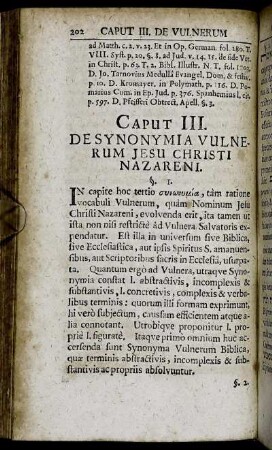 202 CAPUT III. DE VULNERUM
ad Matth. c. 2. v. 23. Et in Op. German. fol. 180. T.
VIII. Syst. p. 20. §. 1. ad Jud. v. 14. 15. de fide Vet.
in Christ. p. 63. T. 2. Bibl. Illustr. N. T. fol. 1709.
D. Jo. Tarnovius Medullâ Evangel. Dom. & festiv.
p. 10. D. Kromayer, in Polymath. p. 116. D. Po-
marius Com. in Ep. Jud. p. 376. Spanhemius l. cit.
p. 597. D. Pfeifferi Obtrect. Apell. §. 3.
CAPUT III.
DE SYNONYMIA VULNE-
RUM JESU CHRISTI
NAZARENI.
§. I.
IN capite hoc tertio συνωνυμία, tàm ratione
vocabuli Vulnerum, quàm Nominum Jesu
Christi Nazareni, evolvenda erit, ita tamen ut
ista non nisi restrictè ad Vulnera Salvatoris expen-
datur. Est illa in universum sive Biblica,
sive Ecclesiastica, aut ipsis Spiritus S. amanuensi-
bus, aut Scriptoribus sacris in Ecclesiâ, usurpa-
ta. Quantum ergò ad Vulnera, utraqve Syno-
nymia constat l. abstractivis, incomplexis &
substantivis, l. concretivis, complexis & verbo-
libus terminis: quorum illi formam exprimunt,
hi verò subjectum, causam efficientem atque a-
lia connotant. Utrobiqve proponitur l. propri-
è l. figuratè, Itaqve primo omnium huc ac-
cersenda sunt Synonyma Vulnerum Biblica,
quæ terminis abstractivis, incomplexis & sub-
stantivis ac propriis absolvuntur.
§. 2.